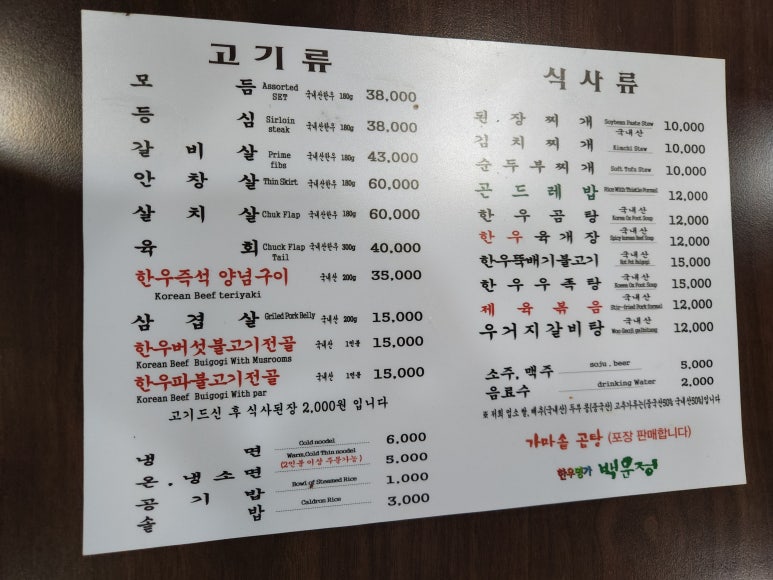 고기류
모 듬 Assorted SET 국내산한우 180g 38,000
등 심 Sirloin steak 국내산한우 180g 38,000
갈 비 살 Prime fibs 국내산한우 180g 43,000
안 창 살 Thin Skirt 국내산한우 180g 60,000
살 치 살 Chuk Flap 국내산한우 180g 60,000
육 회 Chuck Flap Tail 국내산한우 300g 40,000
한우즉석 양념구이 국내산 200g 35,000
Korean Beef teriyaki
삼 겹 살 Griled Pork Belly 국내산 200g 15,000
한우버섯불고기전골 국내산 1인분 15,000
Korean Beef Buigogi With Musrooms
한우파불고기전골 국내산 1인분 15,000
Korean Beef Buigogi With par
고기드신 후 식사된장 2,000원 입니다
냉 면 Cold noodel 6,000
온.냉소면 Warm,Cold Thin noodel (2인분 이상 주문가능) 5,000
공 기 밥 Bowl of Steamed Rice 1,000
솥 밥 Caldron Rice 3,000
식사류
된.장찌개 Soybean Paste Stew 국내산 10,000
김치찌개 Kimchi Stew 10,000
순두부찌개 Soft Tofu Stew 10,000
곤드레밥 Rice With Thistle 12,000
한우곰탕 국내산 Korea Ox Foot Soup 12,000
한우육개장 국내산 Spicy korean Beef Soup 12,000
한우뚝배기불고기 국내산 Hot Pot Bulgogi 15,000
한우우족탕 국내산 Korea Ox Foot Soup 15,000
제육볶음 국내산 Stir-fried Pork 12,000
우거지갈비탕 국내산 Woo-Geoji galbitang 12,000
소주, 맥주 soju . beer 5,000
음료수 drinking Water 2,000
※ 저희 업소 쌀, 배추(국내산) 두부 콩(중국산) 고추가루는(중국산50% 국내산50%)입니다
가마솥 곤탕 (포장 판매합니다)
한우명가 백운정